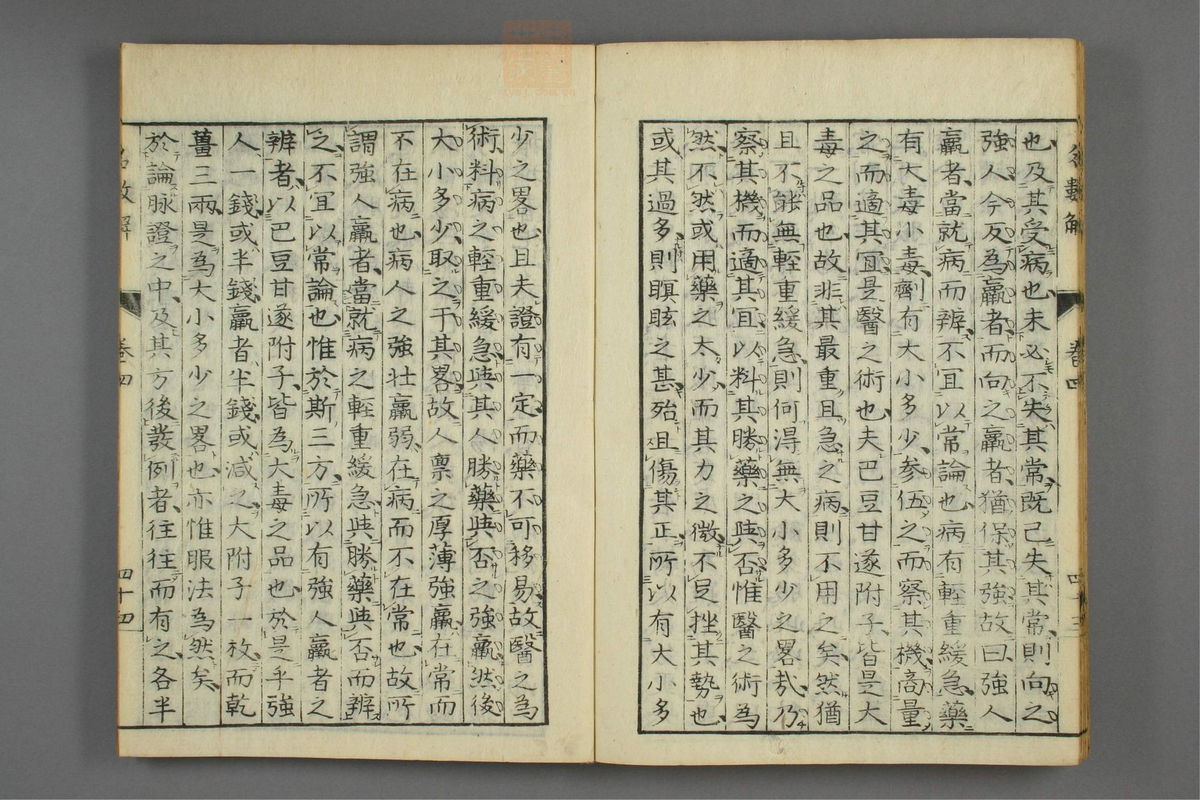 也及其受病也未必不失其常既已失其常則向之
強人今反為羸者而向之羸者猶保其強故曰強人
羸者當就病而辨不冝以常論也病有輕重緩急藥
有大毒小毒劑有大小多少參伍之而察其機商量
之而適其冝是醫之術也夫巴豆甘遂附子皆是大
毒之品也故非其最重且急之病則不用之矣然猶
且不能無輕重緩急則何得無大小多少之畧哉乃
察其機而適其冝以料其勝藥之與否惟醫之術為
然不然或用藥之太少而其力之微不足挫其勢也
或其過多則瞑眩之甚殆且傷其正所以有大小多
少之畧也且夫證有一定而藥不可移易故醫之為
術料病之輕重緩急與其人勝藥與否之強羸然後
大小多少取之于其畧故人稟之厚薄強羸在常而
不在病也病人之強壯羸弱在病而不在常也故所
謂強人羸者當就病之輕重緩急與勝藥與否而辨
之不冝以常論也惟於斯三方所以有強人羸者之
辨者以巴豆甘遂附子皆為大毒之品也於是乎強
人一錢或半錢羸者半錢或減之大附子一枚而乾
薑三兩是為大小多少之畧也亦惟服法為然矣
於論脉證之中及其方後發例者往往而有之各半
名數解
卷四
四十三
名數解
卷四
四十四